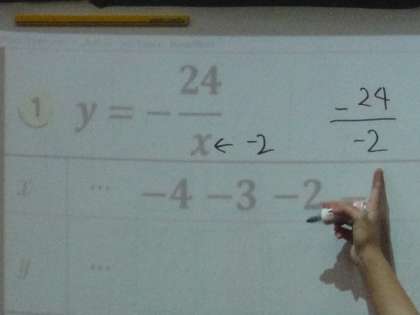 ① y = - 24/x ← -2
-24/-2
x ... -4 -3 -2
y ...